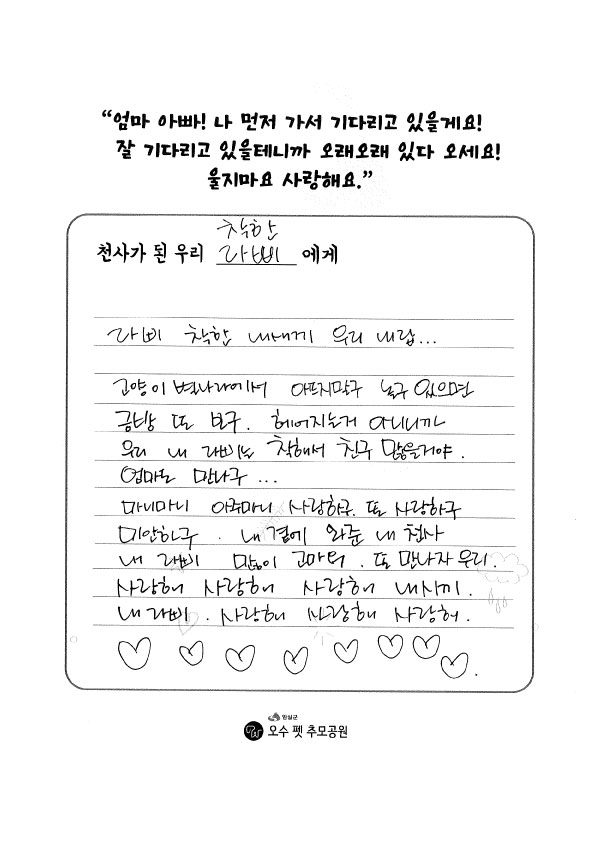 “엄마 아빠! 나 먼저 가서 기다리고 있을게요!
잘 기다리고 있을테니까 오래오래 있다 오세요!
울지마요 사랑해요.”
착한
천사가 된 우리 라삐 에게
라삐 착한 내새끼 우리 내랍...
고양이 별나라에서 아프지말구 놀구 있으면
금방 또 보구. 헤어지는거 아니니까
우리 내 라삐는 착해서 친구 많을거야.
엄마는 만나구 ...
마니마니 아주마니 사랑하구. 또 사랑하구
미안하구. 내 곁에 와준 내 천사
내 라삐 많이 고마워. 또 만나자 우리.
사랑해 사랑해 사랑해 내새끼.
내 라삐. 사랑해 사랑해 사랑해.
임실군
오수 펫 추모공원